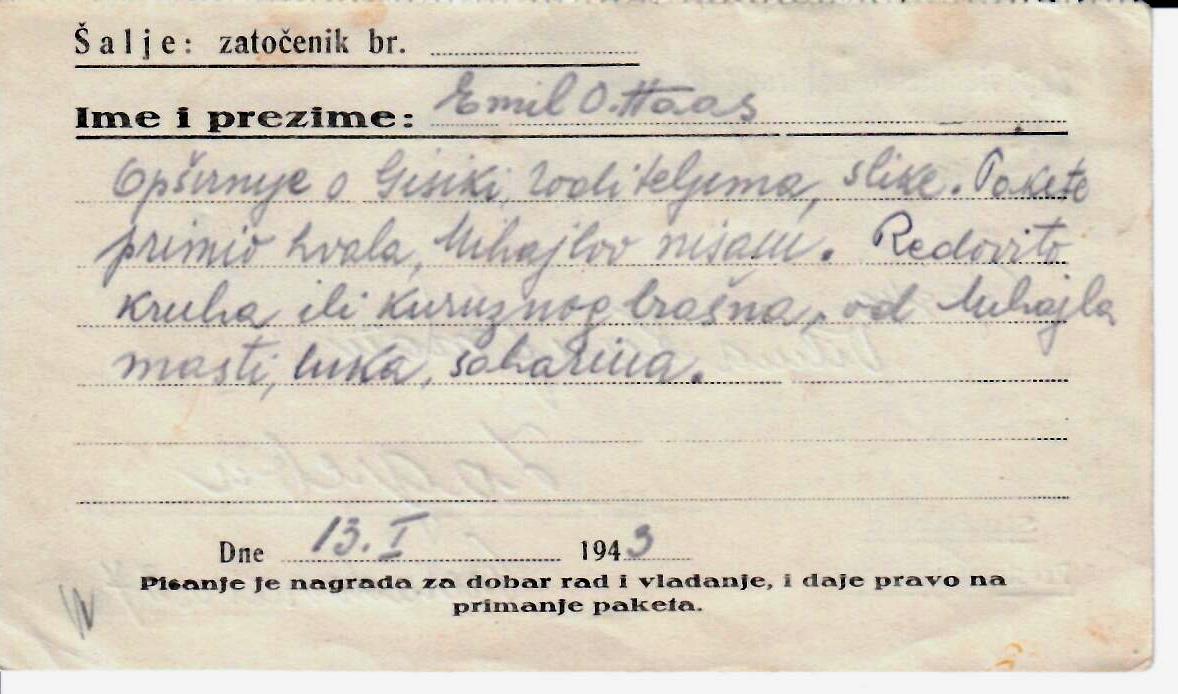 Šalje: zatočenik br.
Ime i prezime: Emil O. Haas
Opširnije o Gisiki, roditeljima, slike. Pakete
primio hvala, Mihajlov nisam. Redovito
kruha ili kuruznog brašna, od Mihajla
masti, luka, saharina.
Dne 13. I 1943
Pisanje je nagrada za dobar rad i vladanje, i daje pravo na
primanje paketa.